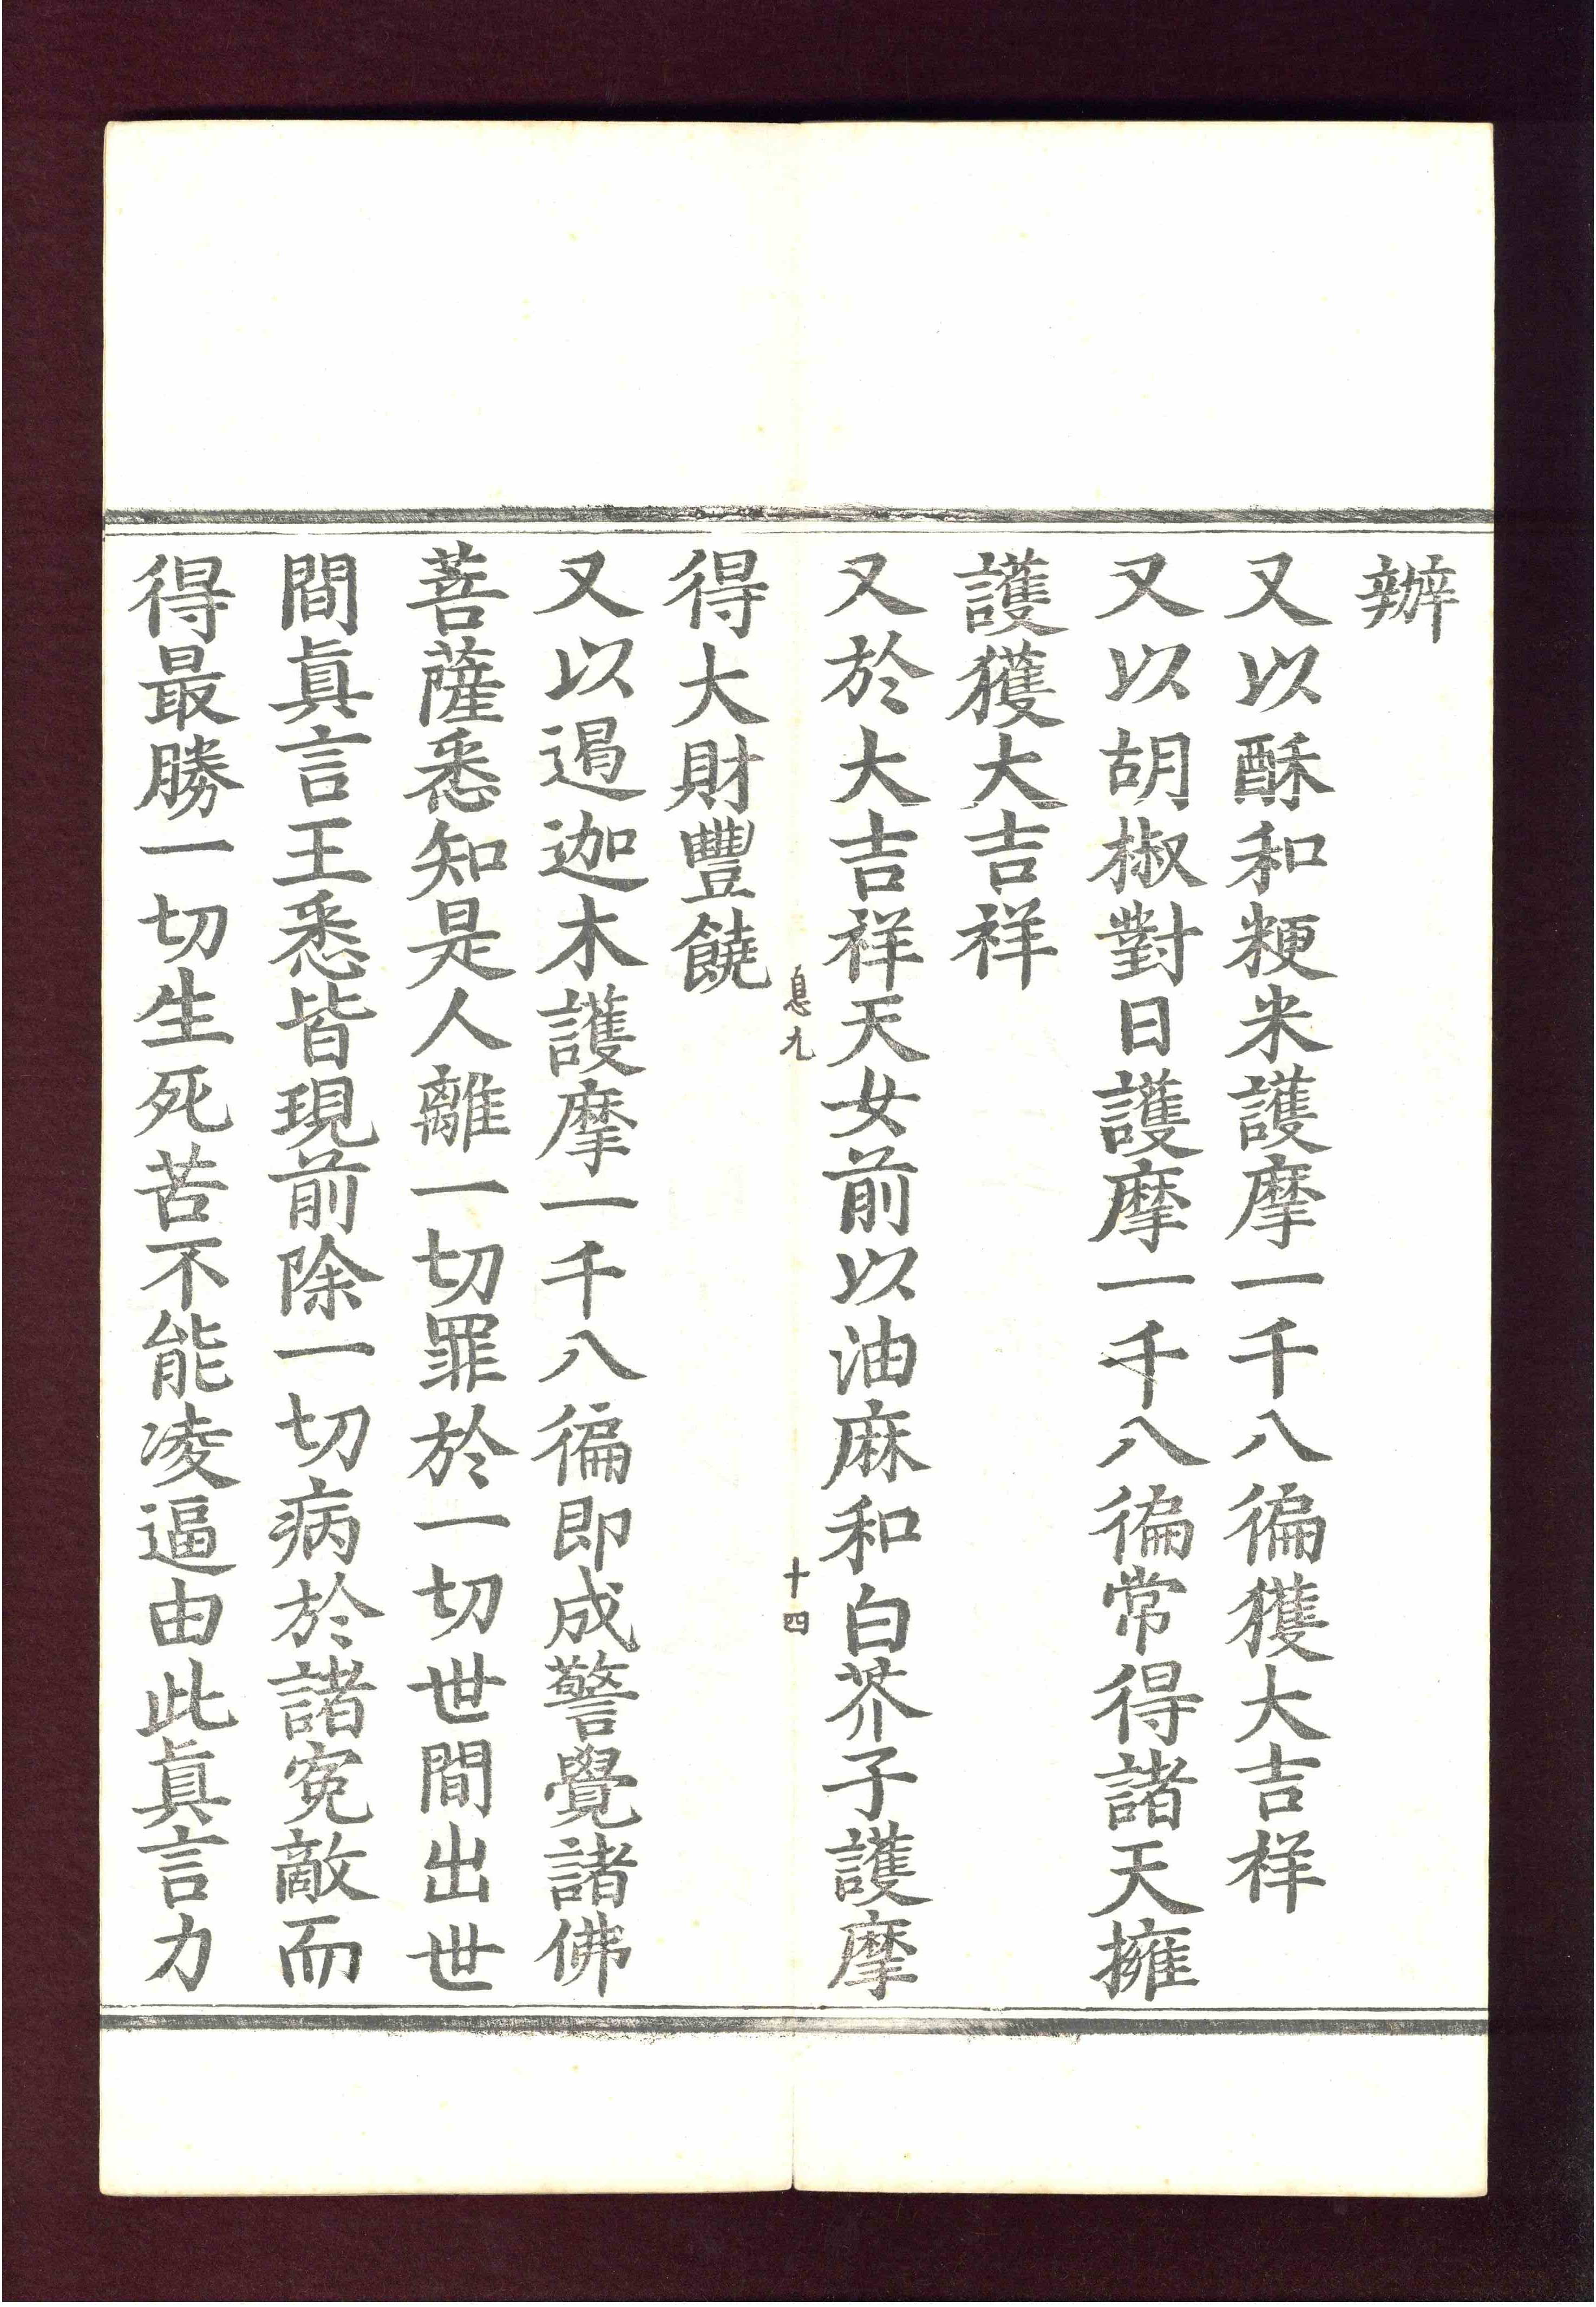 辦
又以酥和粳米護摩一千八徧獲大吉样
又以胡椒對日護摩一千八徧常得諸天擁
護獲大吉祥
又於大吉祥天女前以油麻和白芥子護摩
息九
十四
得大財豐饒
又以遏迦木護摩一千八徧即成警覺諸佛
菩薩悉知是人離一切罪於一切世間出世
間眞言王悉皆現前除一切病於諸寃敵而
得最勝一切生死苦不能凌逼由此眞言力